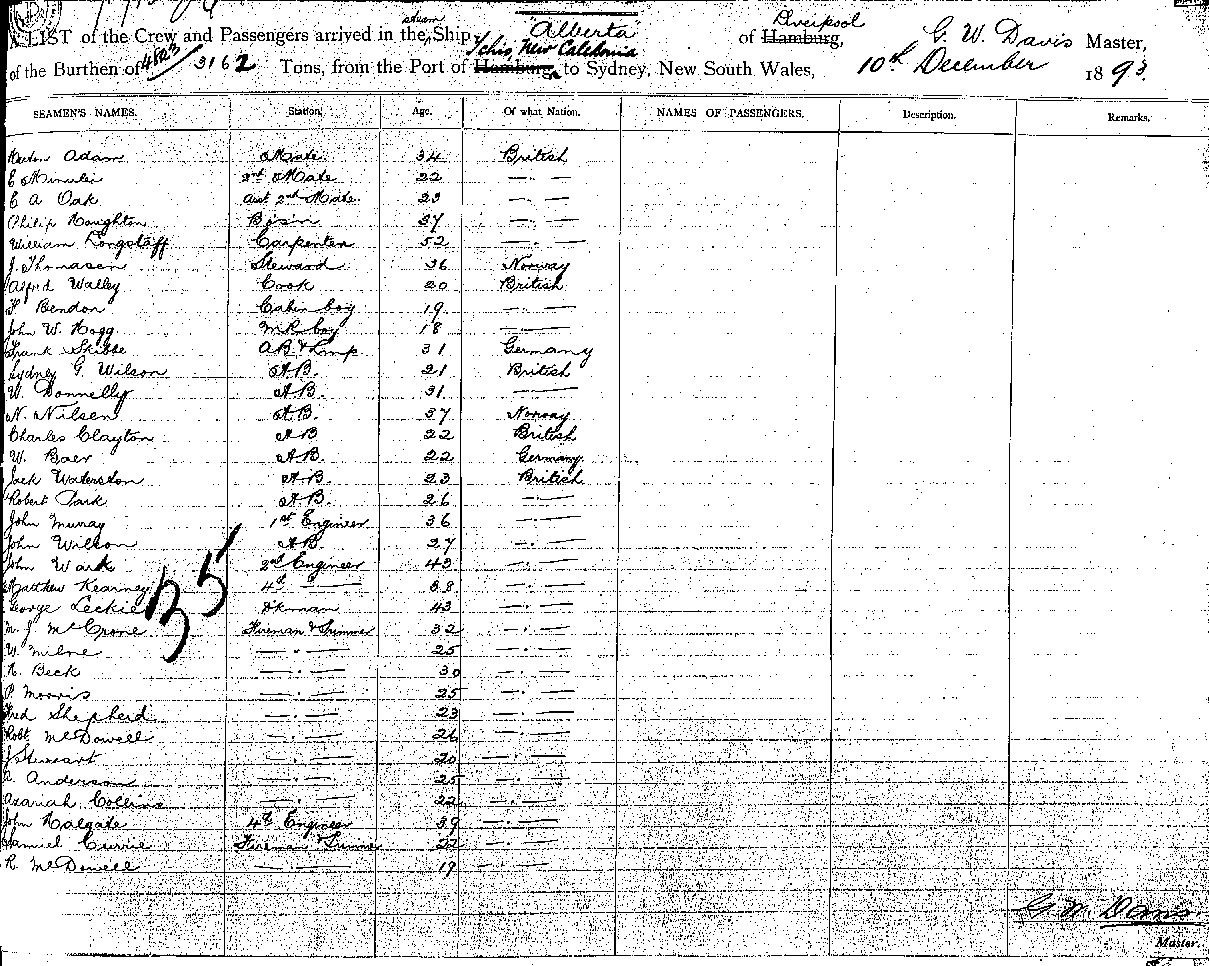 steam Alberta Liverpool
A LIST of the Crew and Passengers arrived in the Ship of Hamburg, G. W. Davis Master,
Tchio, New Caledonia
of the Burthen of 4803/3162 Tons, from the Port of Hamburg, to Sydney, New South Wales, 10th December 1893.
SEAMEN'S NAMES. Station. Age. Of what Nation. NAMES OF PASSENGERS. Description. Remarks.
Adam Mate 34 British
E 2nd Mate 22 — " —
E A Oak Asst 2nd Mate 23 — " —
Philip Houghton Bosn 37 — " —
William Longstaff Carpenter 52 — " —
J. Thomasen Steward 36 Norway
Alfred Walley Cook 20 British
Bendon Cabin boy 19 — " —
John W. Hogg M R boy 18 — " —
Frank Skibbe AB & Lmp 31 Germany
Sydney G. Wilson A.B. 21 British
W. Donnelly A.B. 31 — " —
N. Nilsen A.B. 37 Norway
Charles Clayton A B 22 British
W. Baer A.B. 22 Germany
Jack Waterston A.B. 23 British
Robert Park A.B. 26 — " —
John Murray 1st Engineer 36 — " —
John Wilson A.B. 27 — " —
John Wark Engineer 43 — " —
Matthew Kearney 4th — 38 — " —
George Leckie Dkman 43 — " —
35
M. J. McCrone Fireman & Trimmer 32 — " —
W. Milne — " — 25 — " —
H. Beck — " — 30 — " —
Morris — " — 25 — " —
Fred Shepherd — " — 23 — " —
Robt McDowell — " — 26 — " —
J Stewart — " — 20 — " —
Anderson — " — 25 — " —
Azariah Collins — " — 22 — " —
John Halgate 4th Engineer 39 — " —
Samuel Currie Fireman Trimmer 22 — " —
R. McDowell — " — 19 — " —
G. W. Davis
Master.